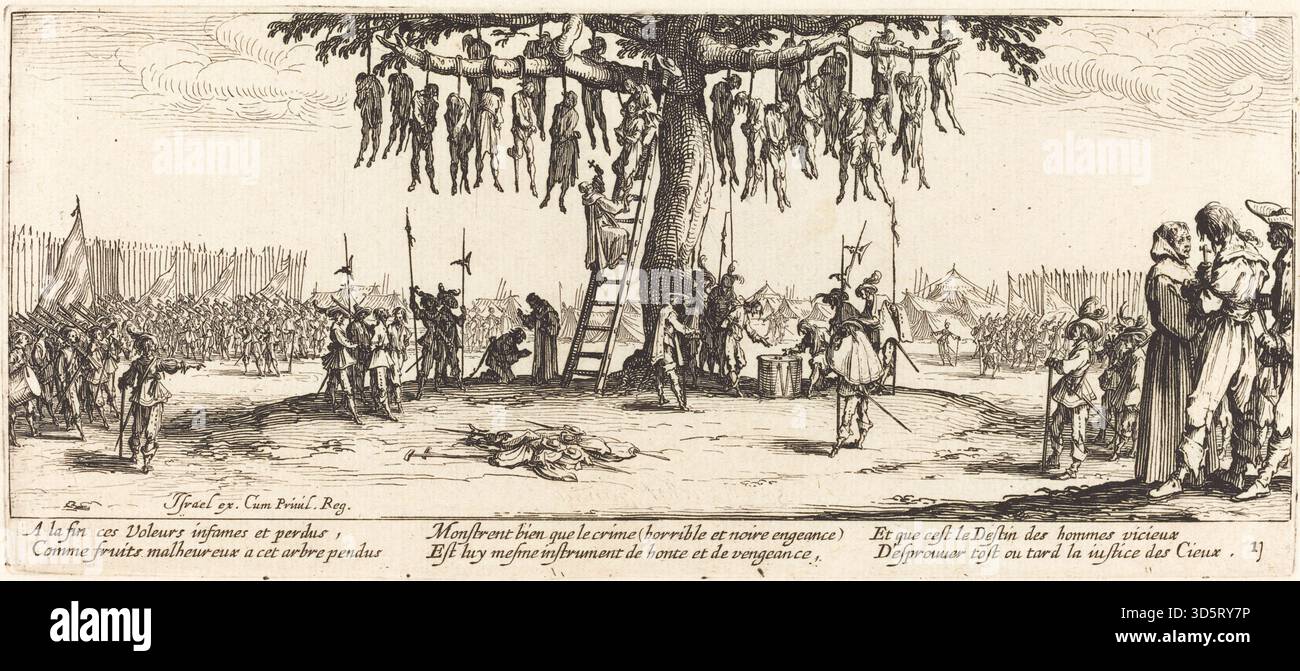 Israel ex. Cum Privil. Reg.
A la fin ces Voleurs infames et perdus ,
Comme fruits malheureux a cet arbre pendus
Monstrent bien que le crime (horrible et noire engeance)
Est luy mesme instrument de honte et de vengeance ,
Et que cest le Destin des hommes vicieux
D'esprouver tost ou tard la iustice des Cieux .
11
alamy
alamy
alamy
Image ID: 3D5RY7P
www.alamy.com